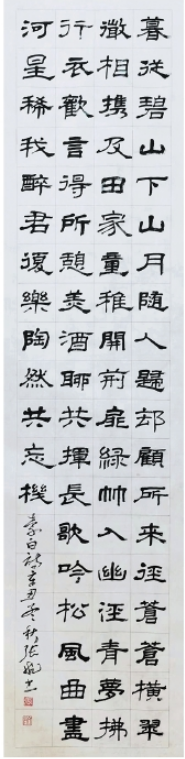 暮從碧山下山月随人歸却顧所来徑蒼蒼橫翠
微相携及田家童稚開荊扉綠竹入幽徑青蘿拂
行衣歡言得所憩美酒聊共揮長歌吟松風曲盡
河星稀我醉君復樂陶然共忘機
李白詩辛丑孟秋張